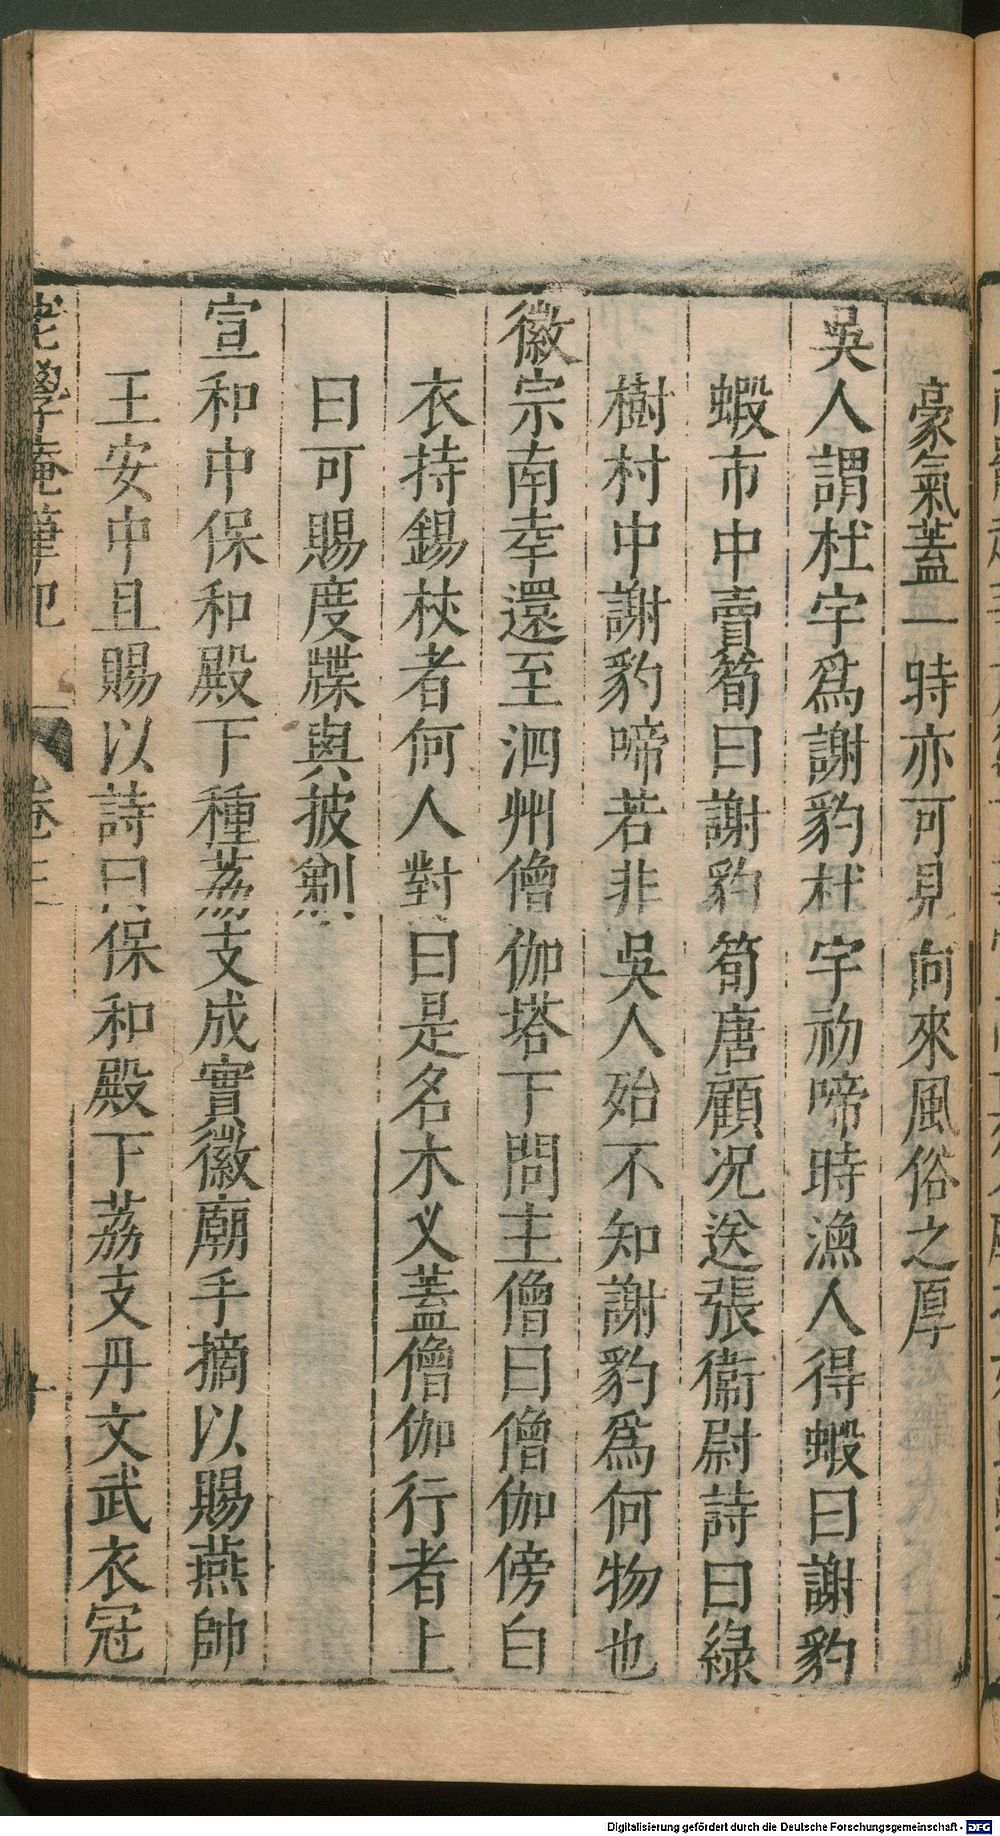 豪氣蓋一時亦可見向來風俗之厚
吳人謂杜宇爲謝豹杜宇初啼時漁人得蝦曰謝豹
蝦市中賣筍曰謝豹筍唐顧况送張衞尉詩曰綠
樹村中謝豹啼若非吳人殆不知謝豹爲何物也
徽宗南幸還至泗州僧伽塔下問主僧曰僧伽傍白
衣持錫杖者何人對曰是名木义蓋僧伽行者上
曰可賜度牒與披剃
宣和中保和殿下種荔支成實徽廟手摘以賜燕帥
王安中且賜以詩曰保和殿下荔支丹文武衣冠
老學庵筆記
卷三
Digitalisierung gefördert durch die Deutsche Forschungsgemeinschaft - DFG